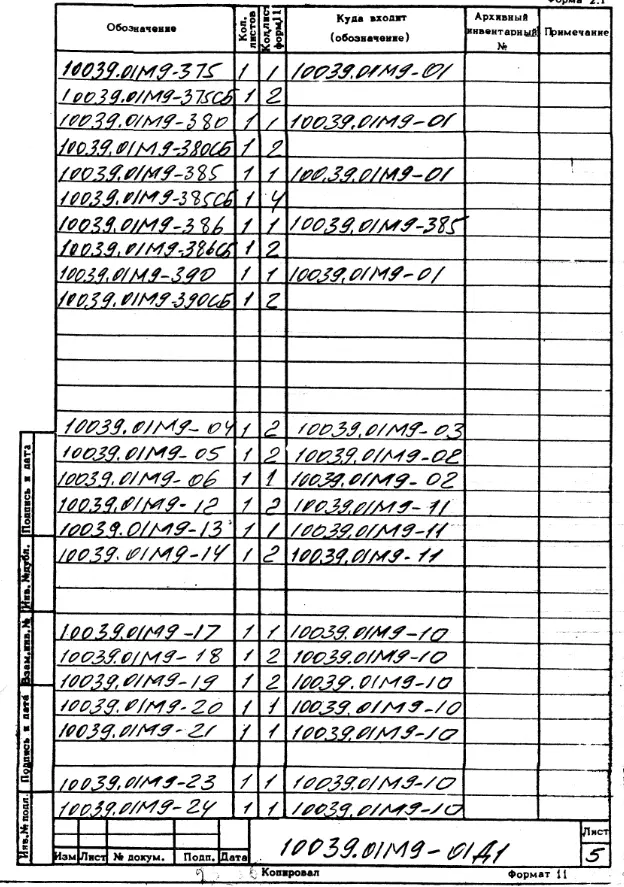 Форма 2.1
Обозначение Кол. листов Кол.лист. форм.11 Куда входит (обозначение) Архивный инвентарный № Примечание
10039.01М9-375 1 1 10039.01М9-01
10039.01М9-375СБ 1 2
10039.01М9-380 1 1 10039.01М9-01
10039.01М9-380СБ 1 2
10039.01М9-385 1 1 10039.01М9-01
10039.01М9-385СБ 1 4
10039.01М9-386 1 1 10039.01М9-385
10039.01М9-386СБ 1 2
10039.01М9-390 1 1 10039.01М9-01
10039.01М9-390СБ 1 2
10039.01М9-04 1 2 10039.01М9-03
10039.01М9-05 1 2 10039.01М9-02
10039.01М9-06 1 1 10039.01М9-02
10039.01М9-12 1 2 10039.01М9-11
10039.01М9-13 1 1 10039.01М9-11
10039.01М9-14 1 2 10039.01М9-11
10039.01М9-17 1 1 10039.01М9-10
10039.01М9-18 1 2 10039.01М9-10
10039.01М9-19 1 2 10039.01М9-10
10039.01М9-20 1 1 10039.01М9-10
10039.01М9-21 1 1 10039.01М9-10
10039.01М9-23 1 1 10039.01М9-10
10039.01М9-24 1 1 10039.01М9-10
Подпись и дата
Инв.№дубл.
Взам.инв.№
Подпись и дата
Инв.№ подл.
Изм Лист № докум. Подп. Дата
10039.01М9-01Д1
Лист
5
Копировал Формат 11